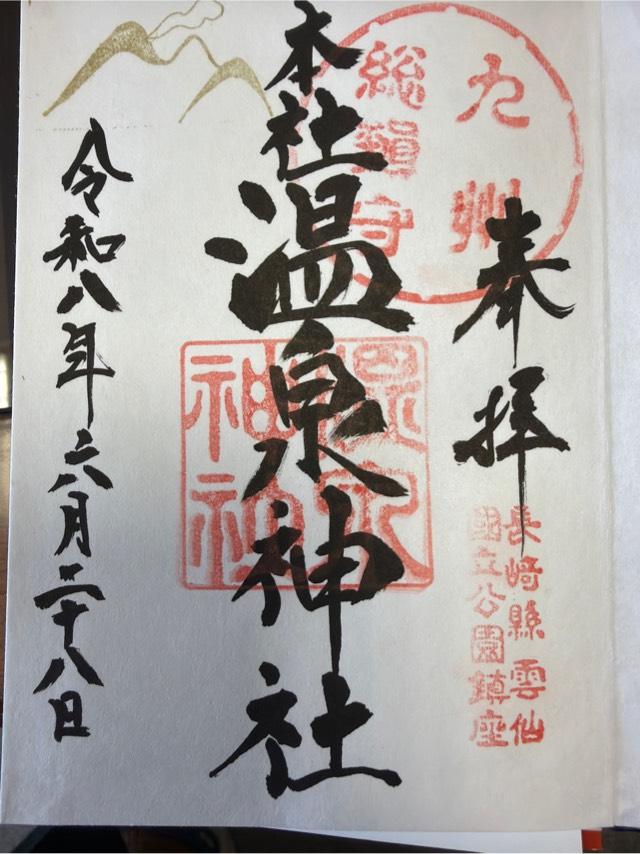 奉拝
長崎縣雲仙
國立公園鎮座
九州
総鎮守
本社温泉神社
温泉
神社
令和八年六月二十八日